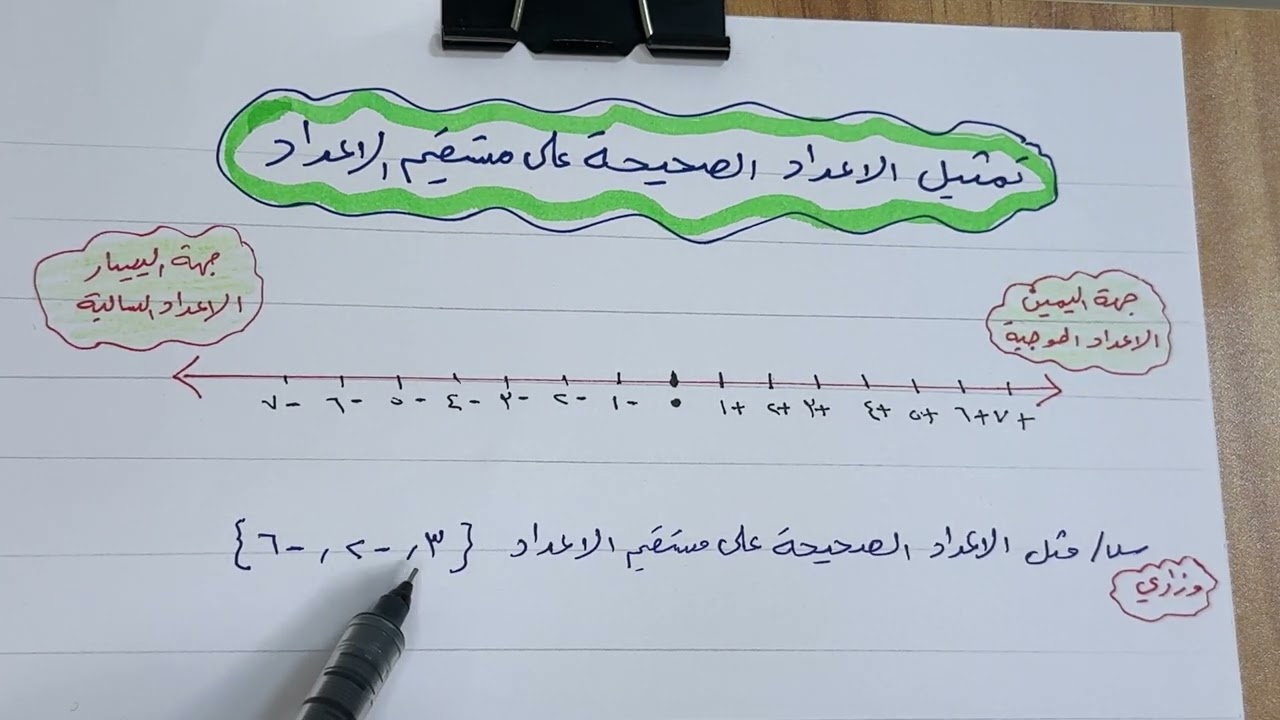 تمثيل الاعداد الصحيحة على مستقيم الاعداد
جهة اليمين
الاعداد الموجبة
جهة اليسار
الاعداد السالبة
٧- ٦- ٥- ٤- ٣- ٢- ١- ٠ ١+ ٢+ ٣+ ٤+ ٥+ ٦+ ٧+
س/ مثل الاعداد الصحيحة على مستقيم الاعداد {٣ , ٢- , ٦-}
وزاري